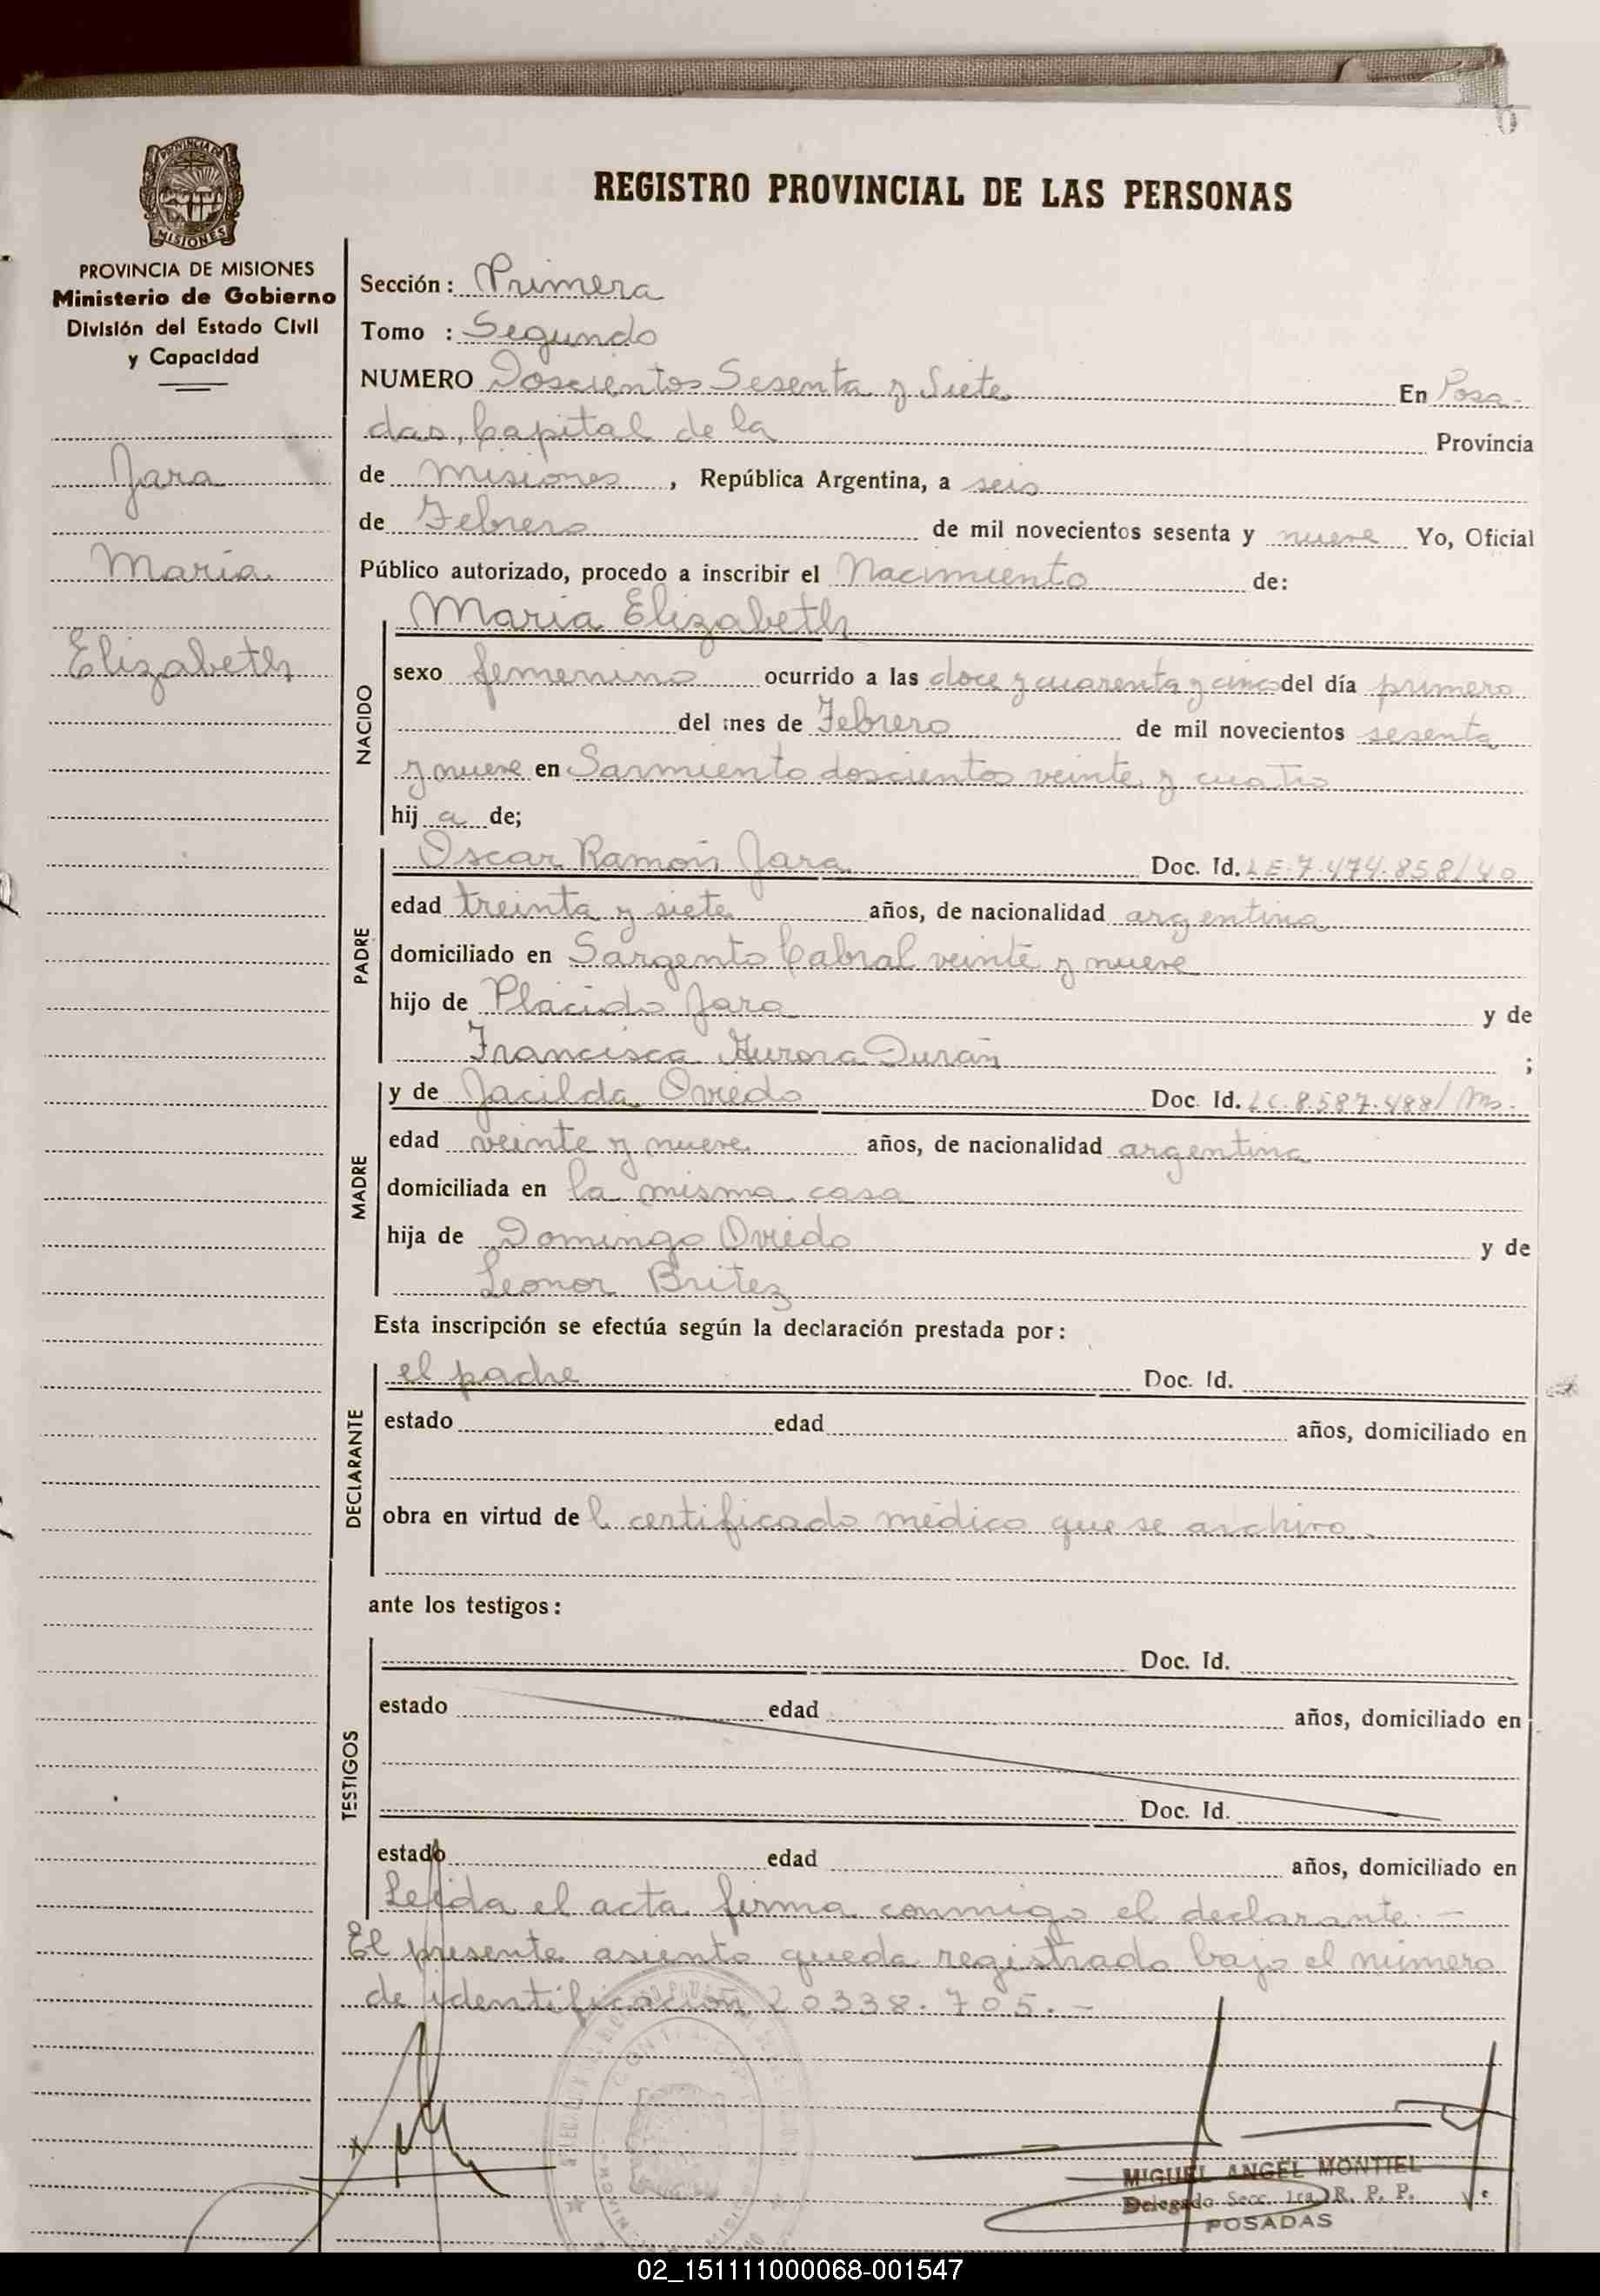 REGISTRO PROVINCIAL DE LAS PERSONAS
PROVINCIA DE
MISIONES
PROVINCIA DE MISIONES
Ministerio de Gobierno
División del Estado Civil
y Capacidad
Jara
María
Elizabeth
Sección: Primera
Tomo : Segundo
NUMERO Doscientos Sesenta y Siete En Posa-
das, Capital de la Provincia
de Misiones, República Argentina, a seis
de Febrero de mil novecientos sesenta y nueve Yo, Oficial
Público autorizado, procedo a inscribir el Nacimiento de:
NACIDO
María Elizabeth
sexo femenino ocurrido a las doce y cuarenta y cinco del día primero
del mes de Febrero de mil novecientos sesenta
y nueve en Sarmiento doscientos veinte y cuatro
hij a de;
PADRE
Oscar Ramón Jara Doc. Id. LE.7.474.858/40
edad treinta y siete años, de nacionalidad argentina
domiciliado en Sargento Cabral veinte y nueve
hijo de Plácido Jara y de
Francisca Aurora Durán ;
MADRE
y de Jacilda Oviedo Doc. Id. LC.8.587.488/Ms.
edad veinte y nueve años, de nacionalidad argentina
domiciliada en la misma casa
hija de Domingo Oviedo y de
Leonor Britez
Esta inscripción se efectúa según la declaración prestada por:
DECLARANTE
el padre Doc. Id.
estado edad años, domiciliado en
obra en virtud de l certificado médico que se archiva.
ante los testigos:
TESTIGOS
Doc. Id.
estado edad años, domiciliado en
Doc. Id.
estado edad años, domiciliado en
Leída el acta firma conmigo el declarante.-
El presente asiento queda registrado bajo el número
de identificación 20338.705.-
MIGUEL ANGEL MONTIEL
Delegado Secc. 1ra. R. P. P.
POSADAS
02_151111000068-001547